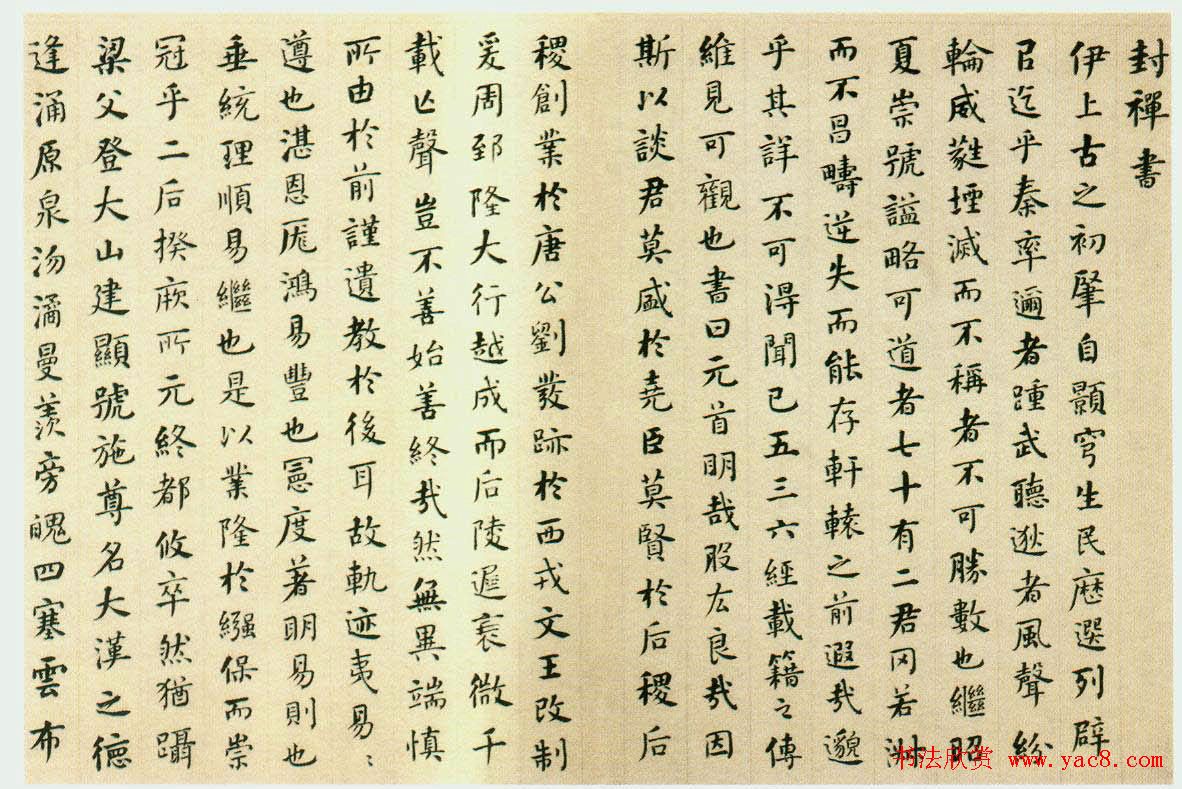 封禪書
伊上古之初肇自顥穹生民歷選列辟
㠯迄乎秦率邇者踵武聽逖者風聲紛
輪威蕤堙滅而不稱者不可勝數也繼昭
夏崇號謚略可道者七十有二君罔若淑
而不昌疇逆失而能存軒轅之前遐哉邈
乎其詳不可得聞已五三六經載籍之傳
維見可觀也書曰元首明哉股厷良哉因
斯以談君莫盛於堯臣莫賢於后稷后
稷創業於唐公劉發跡於西戎文王改制
爰周郅隆大行越成而后陵遲衰微千
載亡聲豈不善始善終哉然無異端慎
所由於前謹遺教於後耳故軌迹夷易〻
遵也湛恩厖鴻易豐也憲度著明易則也
垂統理順易繼也是以業隆於繦保而崇
冠乎二后揆厥所元終都攸卒然猶躡
梁父登大山建顯號施尊名大漢之德
逢涌原泉沕潏曼羨旁魄四塞雲布
书法欣赏 www.yac8.com